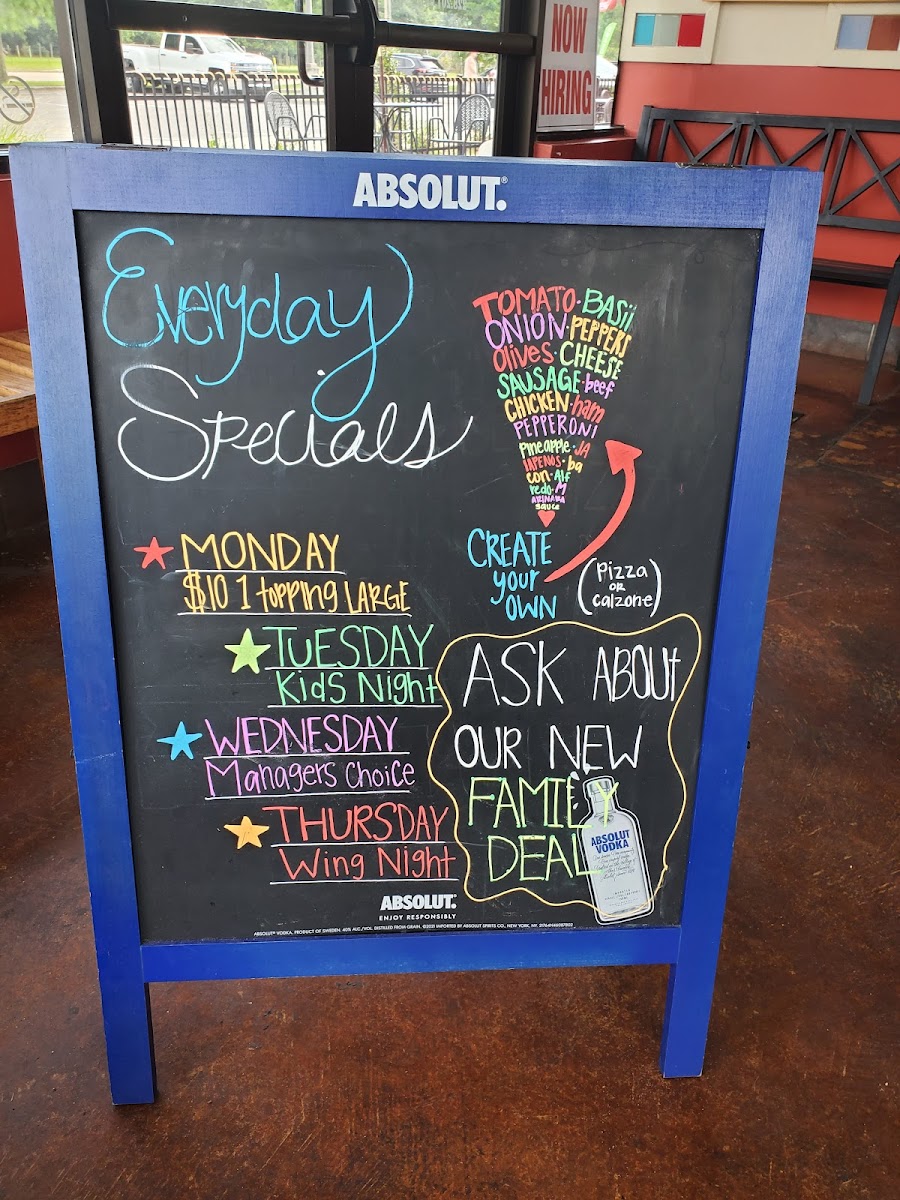 NOW
HIRING
ABSOLUT.®
Everyday
Specials
TOMATO·BASil
ONION·PEPPERS
Olives·CHEESE
SAUSAGE·beef
CHICKEN·ham
PEPPERONI
pineapple·JA
LAPENOS·ba
con·Alf
redo·M
ARINARA
sauce
CREATE
your
OWN
(Pizza
OR
calzone)
MONDAY
$10 1 topping LARGE
TUESDAY
Kids Night
WEDNESDAY
Managers Choice
THURSDAY
Wing Night
ASK ABOUt
OUR NEW
FAMILY
DEAL
ABSOLUT
VODKA
ABSOLUT.
ENJOY RESPONSIBLY
ABSOLUT® VODKA. PRODUCT OF SWEDEN. 40% ALC./VOL. DISTILLED FROM GRAIN. ©2021 IMPORTED BY ABSOLUT SPIRITS CO., NEW YORK, NY.